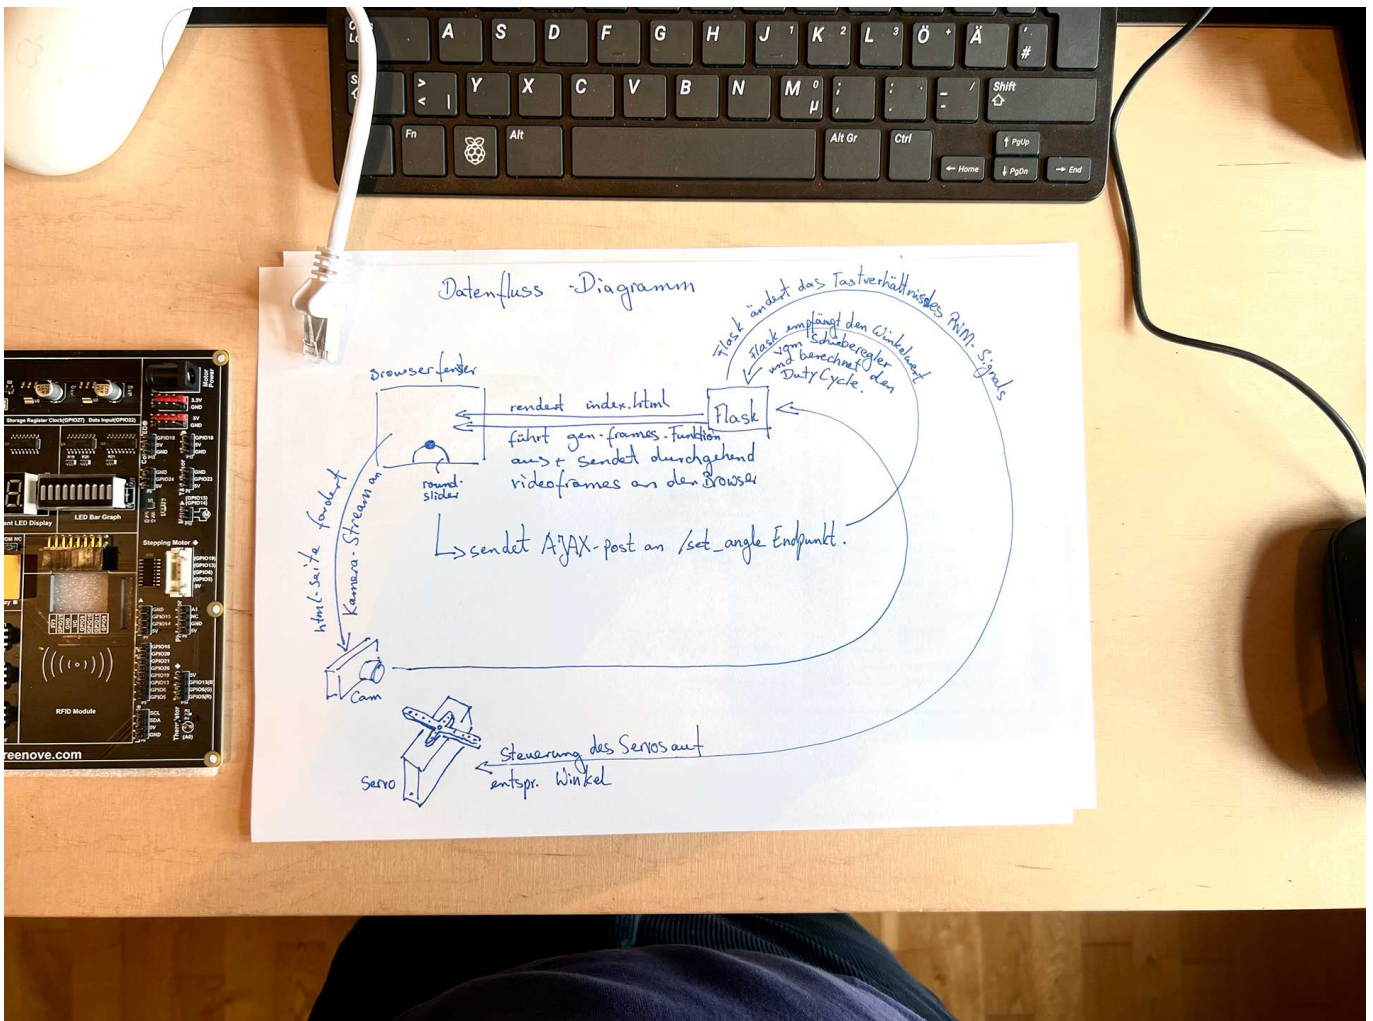 A S D F G H J 1 K 2 L 3 Ö + Ä ' #
> < | Y X C V B N M 0 µ ; , : . _ - / Shift
Fn Alt Alt Gr Ctrl ↑ PgUp
← Home ↓ PgDn → End
Datenfluss -Diagramm
Flask ändert das Tastverhältnis des PWM-Signals
Flask empfängt den Winkelwert
vom Schieberegler
und berechnet den
DutyCycle.
Browserfenster
rendert index.html
Flask
führt gen-frames-Funktion
aus + sendet durchgehend
videoframes an den Browser
round-
slider
sendet AJAX-post an /set_angle Endpunkt.
html-seite fordert
Kamera-Stream an
Cam
Steuerung des Servos auf
entspr. Winkel
Servo
Motor Power
3.3V
GND
5V
GND
Storage Register Clock(GPIO27) Data Input(GPIO22)
GPIO18
5V
GND
LED Bar Graph
ent LED Display
Stepping Motor
RFID Module
SCL
SDA
5V
GND
reenove.com